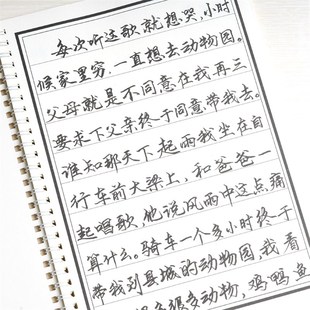 每次听这歌就想哭，小时
候家里穷，一直想去动物园。
父母就是不同意在我再三
要求下父亲终于同意带我去。
谁知那天下起雨我坐在自
行车前大梁上，和爸爸一
起唱歌，他说风雨中这点痛
算什么。骑车一个多小时终于
带我到县城的动物园，我看
很多动物，鸡鸭鱼